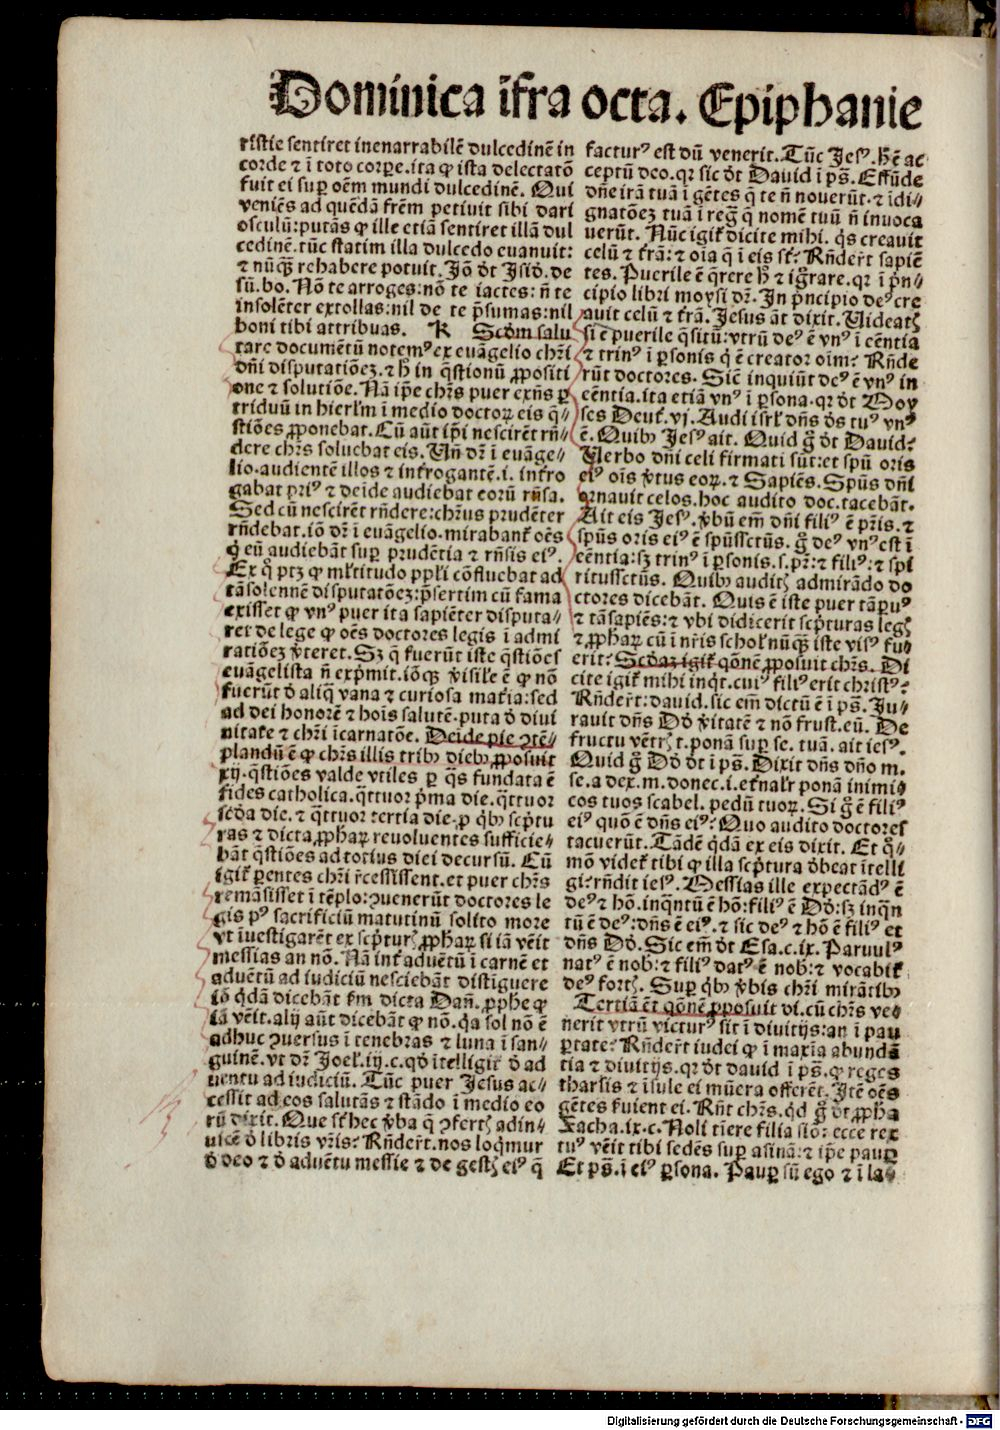 Dominica īfra octa. Epiphanie
ristie sentiret inenarrabilē dulcedinē in
corde ⁊ ī toto corꝑe.ita ꝙ ista delectatō
fuit ei suꝑ oēm mundi dulcedinē. Qui
veniēs ad quēdā frēm petiuit sibi dari
osculū:putās ꝙ ille etiā sentiret illā dul
cedinē.tūc statim illa dulcedo euanuit:
⁊ nūqꝫ rehabere potuit. Jō ꝺt Jsiꝺ. de
sū.bo. Nō te arroges:nō te iactes:n̄ te
insolēter extollas:nil de te p̄sumas:nil
boni tibi attribuas. K Scꝺm salu
tare documētū notemꝰ ex euāgelio chr̄i
dn̄i disputatiōeꝫ.⁊ hꝰ in q̄stionū ꝓpositi
one ⁊ solutiōe. Nā ip̄e chr̄s puer exn̄s ꝑ
triduū in hierl̄m ī medio doctoꝝ eis q̄⸗
stiōes ꝓponebat. Cū aūt ip̄i nescirēt rn̄⸗
dere chr̄s soluebat eis. Vn̄ dr̄ ī euāge⸗
lio.audientē illos ⁊ inᵗrogantē.i. inᵗro
gabat priꝰ ⁊ deīde audiebat eorū rn̄sa.
Sed cū nescirēt rn̄dere:chr̄us prudēter
rn̄debat.iō dr̄ ī euāgelio.mirabanᵗ oēs
q̇ eū audiebāt suꝑ prudētia ⁊ rn̄sis eiꝰ.
Ex qͦ ptꝫ ꝙ ml̄titudo pp̄li cōfluebat ad
tā solennē disputatōeꝫ:p̄sertim cū fama
exisset ꝙ vnꝰ puer ita sapiēter disputa⸗
ret de lege ꝙ oēs doctores legis ī admi
ratiōeꝫ ꝟteret. Sꝫ q̄ fuerūt iste q̄stiōes
euāgelista n̄ exp̄mit.iōqꝫ ꝟisil'e ē ꝙ nō
fuerūt ꝺ aliq̄ vana ⁊ curiosa maᵗia:sed
ad dei honorē ⁊ hoīs salutē.puta ꝺ diui
nitate ⁊ chr̄i īcarnatōe. Deīde pie ꝯtē⸗
plandū ē ꝙ chr̄s illis tribꝰ diebꝰ ꝓposuit
xij.q̄stiōes valde vtiles ꝑ q̄s fundata ē
fides catholica.q̄ttuor p̄ma die.q̄ttuor
scꝺa die.⁊ q̄ttuor tertia die.ꝓ qͥbꝰ scp̄tu
ras ⁊ dicta ꝓphaꝝ reuoluentes sufficie⸗
bāt q̄stiōes ad totius diei decursū. Cū
igiᵗ ꝑentes chr̄i r̄cessissent.et puer chr̄s
remāsisset ī tēplo:ꝯuenerūt doctores le
gis pꝰ sacrificiū matutinū solito more
vt īuestigarēt ex scp̄turꝭ ꝓphaꝝ si iā vēit
messias an nō. Nā inᵗ aduētū ī carnē et
aduētū ad iudiciū nesciebāt distīguere
iō qͥdā dicebāt ẜm dicta Dan̄. ꝓphe ꝙ
iā vēit.alij aūt dicebāt ꝙ nō. qͥa sol nō ē
adhuc ꝯuersus ī tenebras ⁊ luna ī san⸗
guinē.vt dr̄ Joel.ij.c.qꝺ ītelligiᵗ ꝺ ad
uentu ad iudiciū. Tūc puer Jesus ac⸗
cessit ad eos salutās ⁊ stādo ī medio eo
rū dixit. Que sᵗ hec ꝟba q̄ ꝯfertꝭ adin⸗
uicē ꝺ libris vr̄is? Rn̄der̄t.nos loqͥmur
ꝺ deo ⁊ ꝺ aduētu messie ⁊ de gestꝭ eiꝰ q̄
facturꝰ est dū venerit. Tūc Jesꝰ. hᵉ ē ac
ceptū deo.qr sic ꝺt Dauid ī ps̄. Effūde
dn̄e irā tuā ī gētes q̄ te n̄ nouerūt.⁊ īdi⸗
gnatōeꝫ tuā ī reḡ q̄ nomē tuū n̄ inuoca
uerūt. Nūc igiᵗ dicite mihi. qͥs creauit
celū ⁊ ᵗrā:⁊ oīa q̄ ī eis sᵗ? Rn̄der̄t sapiē
tes. Puerile ē q̄rere hᵒ ⁊ igͦrare.qr ī p̄n⸗
cipio libri moysi dr̄. In p̄ncipio deꝰ cre
auit celū ⁊ ᵗrā. Jesus āt dixit. Uideatꝭ
si ē puerile q̄sitū:vtrū deꝰ ē vnꝰ ī cēntia
⁊ trinꝰ ī ꝑsonis qͥ ē creator oīm? Rn̄de
rūt doctores. Sic inquiūt deꝰ ē vnꝰ in
cēntia.ita etiā vnꝰ ī ꝑsona.qr ꝺt Moy
ses Deuᵗ.vj. Audi isrl̄ dn̄s ꝺs tuꝰ vnꝰ
ē. Quibꝰ Jesꝰ ait. Quid gͦ ꝺt Dauid?
Uerbo dn̄i celi firmati sūt:et spū oris
eiꝰ oīs ꝟtus eoꝝ.⁊ Sapiēs. Spūs dn̄i
ornauit celos.hoc audito doc.tacebāt.
Ait eis Jesꝰ. ꝟbū em̄ dn̄i filiꝰ ē pr̄is.⁊
spūs oris eiꝰ ē spūssctūs. gͦ deꝰ vnꝰ est ī
cēntia:sꝫ trinꝰ ī ꝑsonis.s.pr̄:⁊ filiꝰ:⁊ spi
ritussctūs. Quibꝰ auditꝭ admirādo do
ctores dicebāt. Quis ē iste puer tā ꝑuꝰ
⁊ tā sapiēs:⁊ vbi didicerit scp̄turas legꝭ
⁊ ꝓphaꝝ cū ī nr̄is schol' nūqꝫ iste visꝰ fu
erit? Scꝺaꝫ igiᵗ qōnē ꝓposuit chr̄s. Di
cite igiᵗ mihi inqͥt.cuiꝰ filiꝰ erit christꝰ?
Rn̄der̄t:dauid.sic em̄ dictū ē ī ps̄. Ju⸗
rauit dn̄s Dꝺ ꝟitatē ⁊ nō frust.eū. De
fructu vētrꝭ t.ponā suꝑ se. tuā.ait iesꝰ.
Quid gͦ Dꝺ ꝺt ī ps̄. Dixit dn̄s dn̄o m.
se.a dex.m.donec.i.eᵗnalr̄ ponā inimi⸗
cos tuos scabel. pedū tuoꝝ. Si gͦ ē filiꝰ
eiꝰ quō ē dn̄s eiꝰ? Quo audito doctores
tacuerūt. Tādē qͥdā ex eis dixit. Et qͦ⸗
mō videᵗ tibi ꝙ illa scp̄tura ꝺbeat ītelli
gi?rn̄dit iesꝰ. Messias ille expectādꝰ ē
deꝰ ⁊ hō.inqͣntū ē hō:filiꝰ ē Dꝺ:sꝫ inqͣn
tū ē deꝰ:dn̄s ē eiꝰ.⁊ sic deꝰ ⁊ hō ē filiꝰ et
dn̄s Dꝺ. Sic em̄ ꝺt Esa.c.ix. Paruulꝰ
natꝰ ē nob̄:⁊ filiꝰ datꝰ ē nob̄:⁊ vocabiᵗ
deꝰ fortꝭ. Suꝑ qͥbꝰ ꝟbis chr̄i mirātibꝰ
Tertiā ēt qōnē ꝓposuit vi.cū chr̄s ve⸗
nerit vtrū victurꝰ sit ī diuitijs:an ī pau
ꝑtate? Rn̄der̄t iudei ꝙ ī maxīa abundā
tia ⁊ diuitijs.qr ꝺt dauid ī ps̄.ꝙ reges
tharsis ⁊ īsule ei mūera offerēt. Jtē oēs
gētes ẜuient ei. Rn̄t chr̄s.qͥd gͦ ꝺt ꝓpha
Zacha.ix.c. Noli tīere filia siō:ecce rex
tuꝰ vēit tibi sedēs suꝑ asinā:⁊ ip̄e pauꝑ
Et ps̄.ī eiꝰ ꝑsona. Pauꝑ sū ego ⁊ ī la⸗
Digitalisierung gefördert durch die Deutsche Forschungsgemeinschaft - DFG